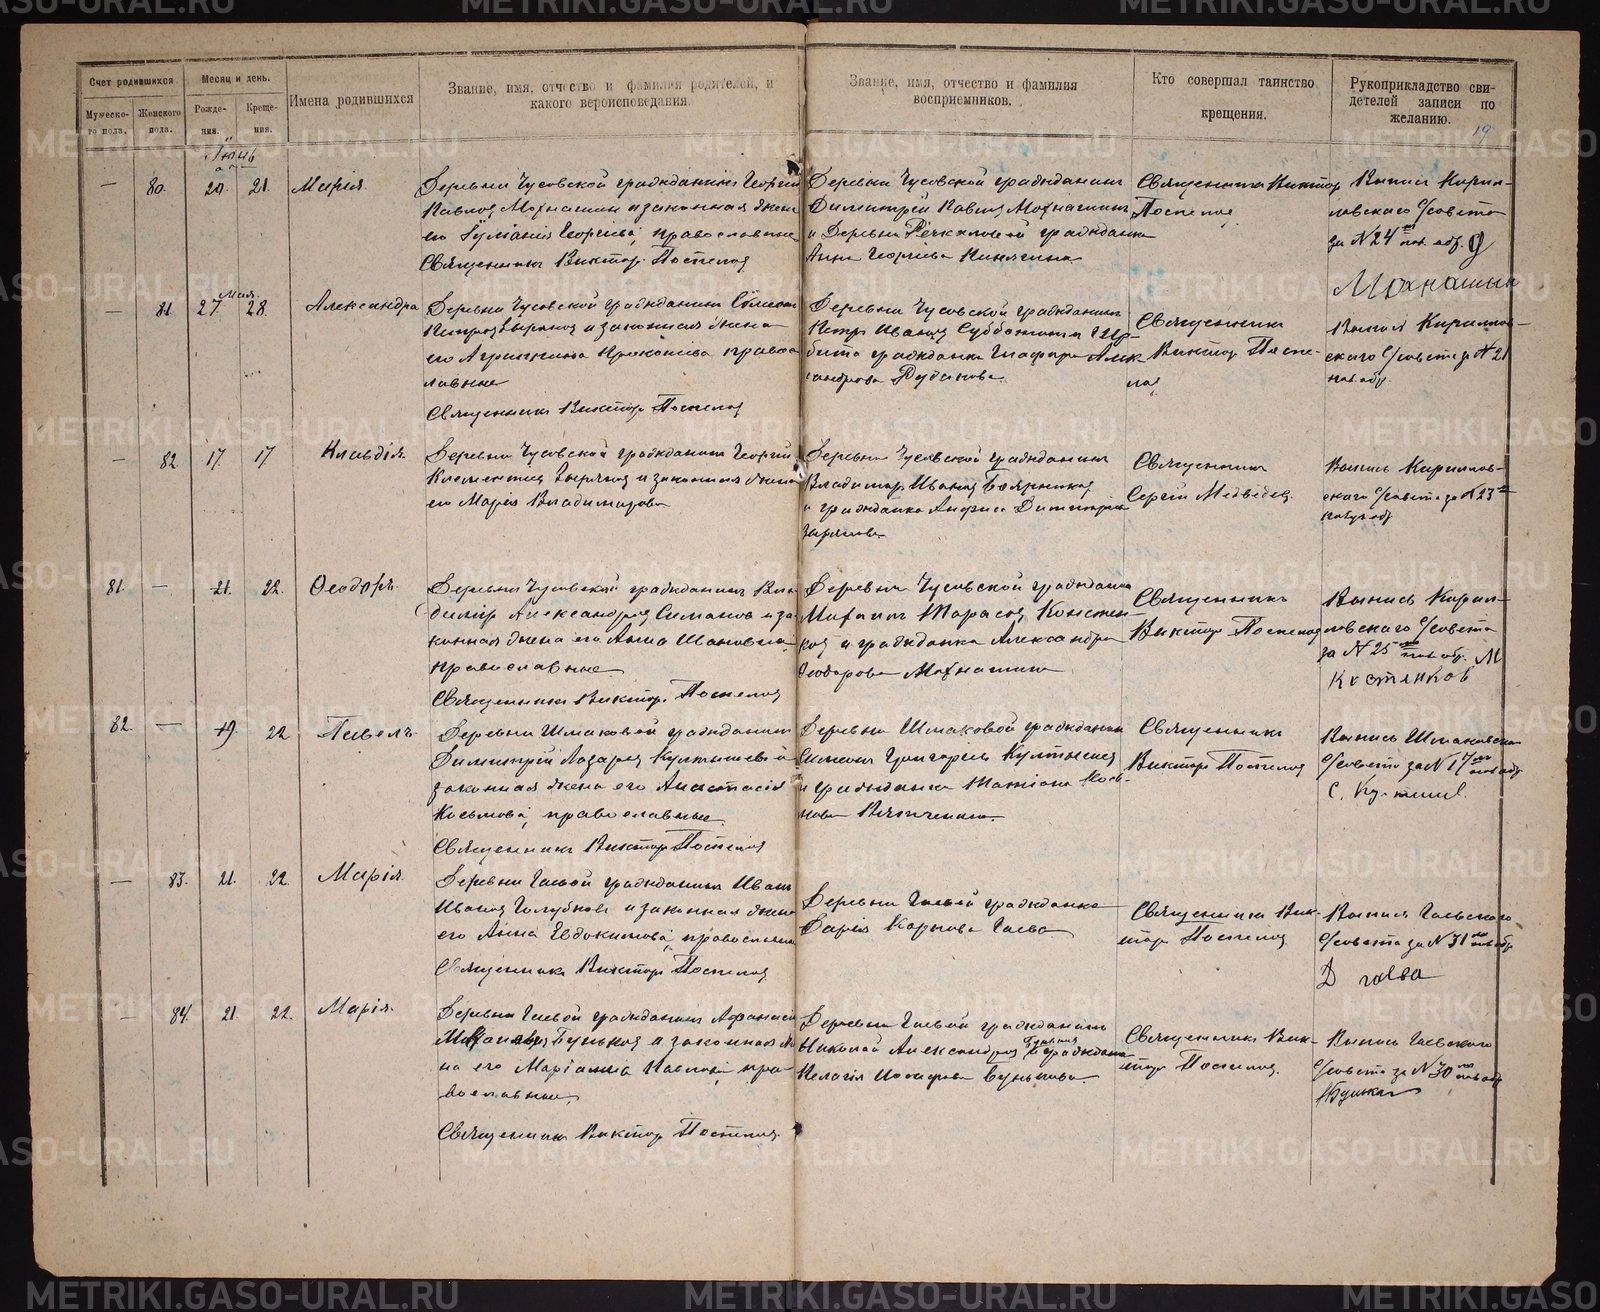 Счет родившихся
Мужеско-
го пола.
Женского
пола.
Месяц и день.
Рожде-
ния.
Креще-
ния.
Имена родившихся
Звание, имя, отчество и фамилия родителей, и
какого вероисповедания.
Звание, имя, отчество и фамилия
восприемников.
Кто совершал таинство
крещения.
Рукоприкладство сви-
детелей записи по
желанию.
19
— 80. 20. 21. Марія
Деревни Чусовской гражданин Георгий
Павлов Мохнашин и законная жена
его Георгіева, православные
Священник Виктор Поспелов
Деревни Чусовской гражданин
Димитрій Павлов Мохнашин
и Деревни гражданка
Анна Георгіева
Священник Виктор
Поспелов
Выпись Кирил-
ловскаго с/совета
за N 24
Мохнашин
Мая.
— 81 27 28. Александра
Деревни Чусовской гражданин
Петров и законная жена
его Агриппина Прокопіева правос-
лавные
Священник Виктор Поспелов
Деревни Чусовской гражданин
Петр Иванов Субботин и
гражданка Глафира Алек-
сандрова
Священник
Виктор Поспе-
лов
Выпись Кириллов-
скаго с/совета за N 21
— 82 17. 17 Клавдія
Деревни Чусовской гражданин Георгий
и законная жена
его Марія Владимирова
Деревни Чусовской гражданин
Владимир Иванов
и гражданка Анфиса Димитріева
Священник
Сергій Медведев
Выпись Кириллов-
скаго с/совета за N 23
81. — 21. 22. Ѳеодоръ
Деревни Чусовской гражданин Вла-
димір Александров Симанов и за-
конная жена его Анна Ивановна
православные
Священник Виктор Поспелов
Деревни Чусовской гражданин
Михаил Тарасов Костен-
ков и гражданка Александра
Ѳеодорова Мохнашина
Священник
Виктор Поспелов
Выпись Кирил-
ловскаго с/совета
за N 25 М
Костянков
82. — 19. 22 Павелъ
Деревни Шмаковой гражданин
Димитрій Лазарев Култышев и
законная жена его Анастасія
Косьмова, православные.
Священник Виктор Поспелов
Деревни Шмаковой гражданин
Симеон Григорьев Култышев
и гражданка Татіана
Священник
Виктор Поспелов
Выпись Шмаковскаго
с/совета за N 17
— 83. 21. 22. Марія
Деревни Гаевой гражданин Иван
Иванов Голубков и законная жена
его Анна Евдокимова, православные
Священник Виктор Поспелов
Деревни Гаевой гражданка
Дарія Карпова Гаева
Священник Вик-
тор Поспелов
Выпись Гаевского
с/совета за N 31
Д гаева
— 84. 21. 22. Марія
Деревни Гаевой гражданин Афанасий
Михайлов Бунков и законная же-
на его Маріанна Павлова, пра-
вославные,
Священник Виктор Поспелов
Деревни Гаевой гражданин
Николай Александров Бунков и гражданка
Пелагія Бунькова.
Священник Вик-
тор Поспелов.
Выпись Гаевского
с/совета за N 30